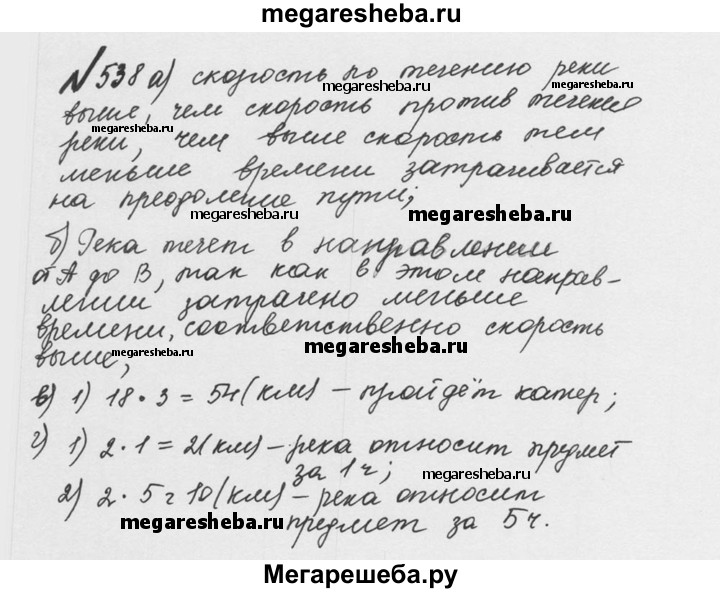 megaresheba.ru
№538 а) скорость по течению реки
megaresheba.ru
выше, чем скорость против течения
megaresheba.ru
реки, чем выше скорость тем
меньше времени затрачивается
на преодоление пути;
megaresheba.ru megaresheba.ru
б) Река течет в направлении
от А до В, так как в этом направ-
лении затрачено меньше
времени, соответственно скорость
megaresheba.ru
выше;
megaresheba.ru
в) 1) 18 · 3 = 54 (км) – пройдёт катер;
г) 1) 2 · 1 = 2 (км) – река относит предмет
за 1 ч;
megaresheba.ru
2) 2 · 5 = 10 (км) – река относит
megaresheba.ru
предмет за 5 ч.
Мегарешеба.ру